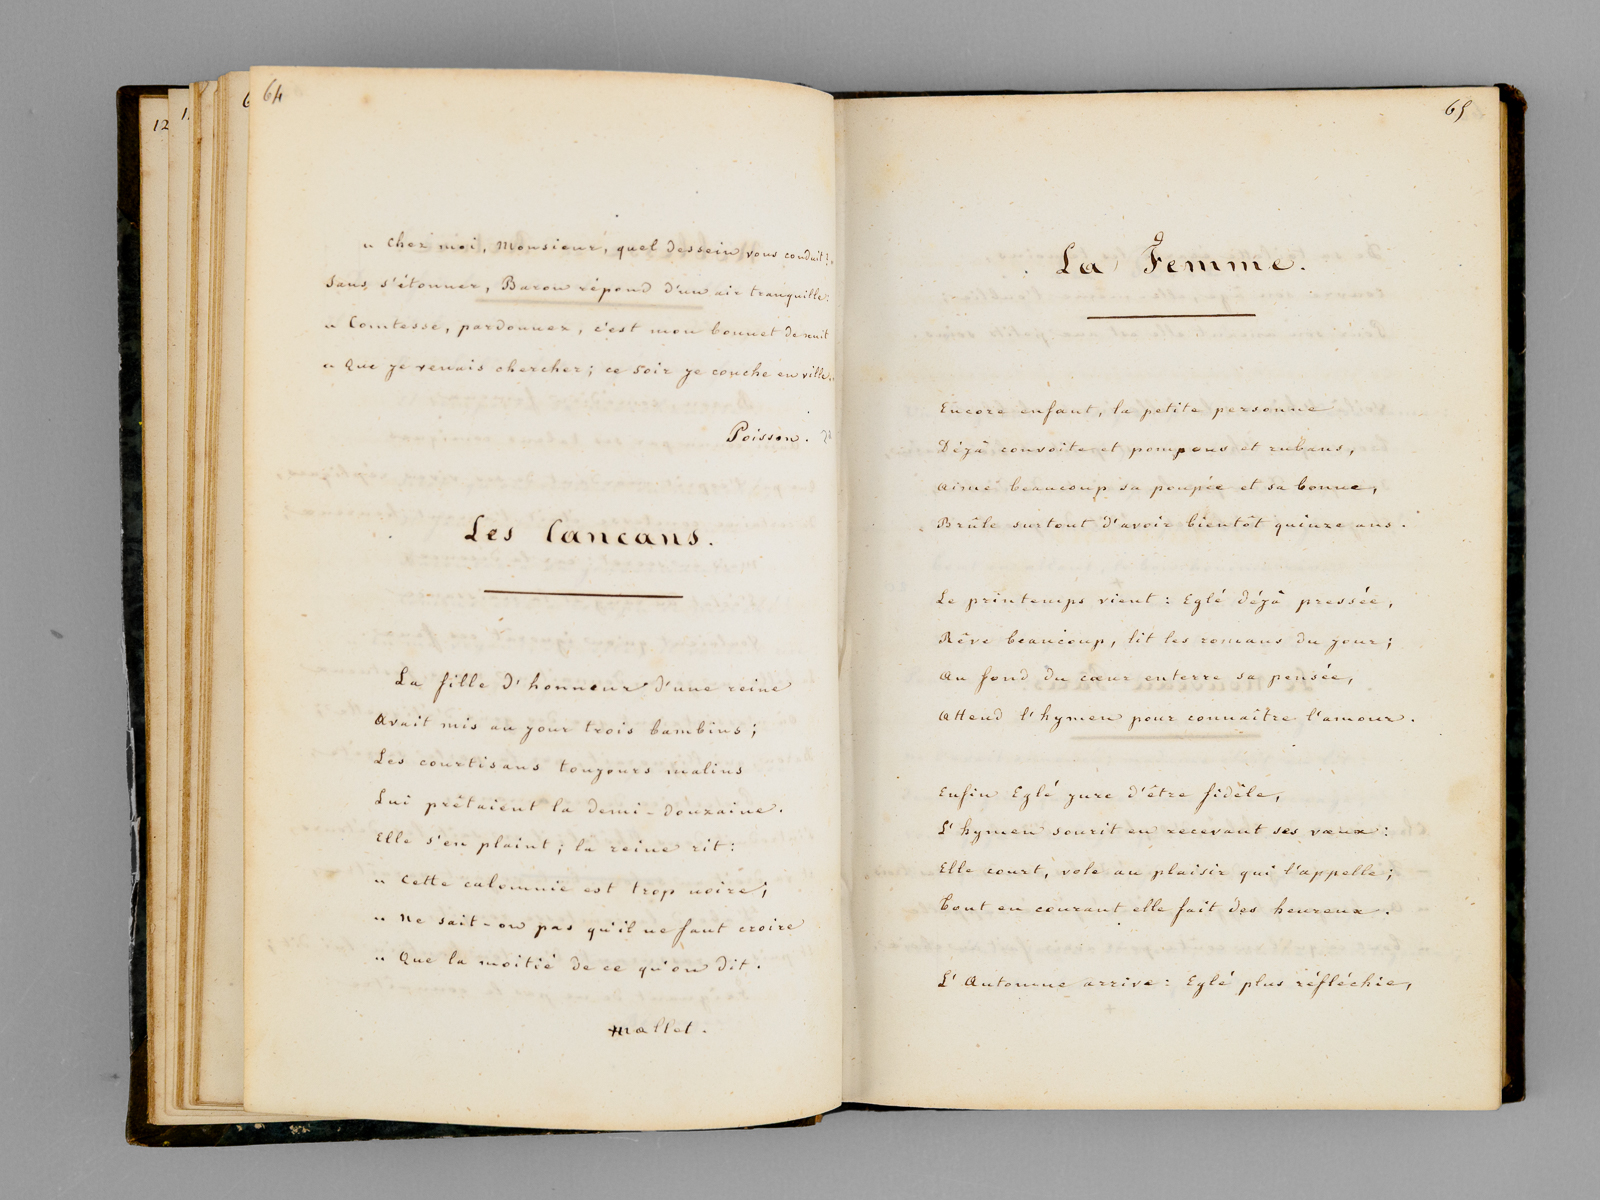 12
64
« Chez moi, Monsieur, quel dessein vous conduit ? »
Sans s'étonner, Baron répond d'un air tranquille :
« Comtesse, pardonnez, c'est mon bonnet de nuit
« Que je venais chercher ; ce soir je couche en ville. »
Poisson.
Les Cancans.
La fille d'honneur d'une reine
Avait mis au jour trois bambins ;
Les courtisans toujours malins
Lui prêtaient la demi-douzaine.
Elle s'en plaint ; la reine rit :
« Cette calomnie est trop noire ;
« Ne sait-on pas qu'il ne faut croire
« Que la moitié de ce qu'on dit.
Mallet.
65
La Femme.
Encore enfant, la petite personne
Déjà convoite et pompons et rubans,
Aime beaucoup sa poupée et sa bonne,
Brûle surtout d'avoir bientôt quinze ans.
Le printemps vient : Eglé déjà pressée,
Rêve beaucoup, lit les romans du jour ;
Au fond du cœur enterre sa pensée,
Attend l'hymen pour connaître l'amour.
Enfin Eglé jure d'être fidèle,
L'hymen sourit en recevant ses vœux :
Elle court, vole au plaisir qui l'appelle ;
Tout en courant elle fait des heureux.
L'Automne arrive : Eglé plus réfléchie,